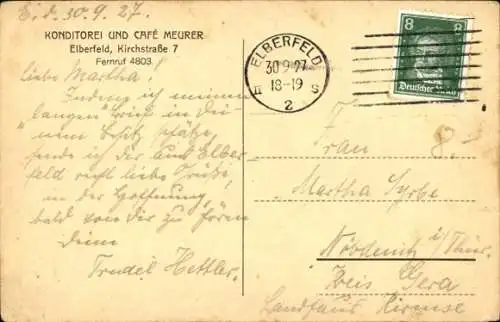 Eld. 30.9.27.
KONDITOREI UND CAFÉ MEURER
Elberfeld, Kirchstraße 7
Fernruf 4803
Liebe Martha!
Indem ich meinen
langen Brief in Dei-
nem Besitz
sende ich Dir aus Elber-
feld recht liebe Grüße,
in der Hoffnung,
bald von Dir zu hören
Deine
Trudel Hettler.
ELBERFELD
30.9.27
18-19
2
8
Deutsches Reich
Frau
8.-
Martha Syrbe
Nöbdenitz i/Thür.
Kreis Gera
Landhaus